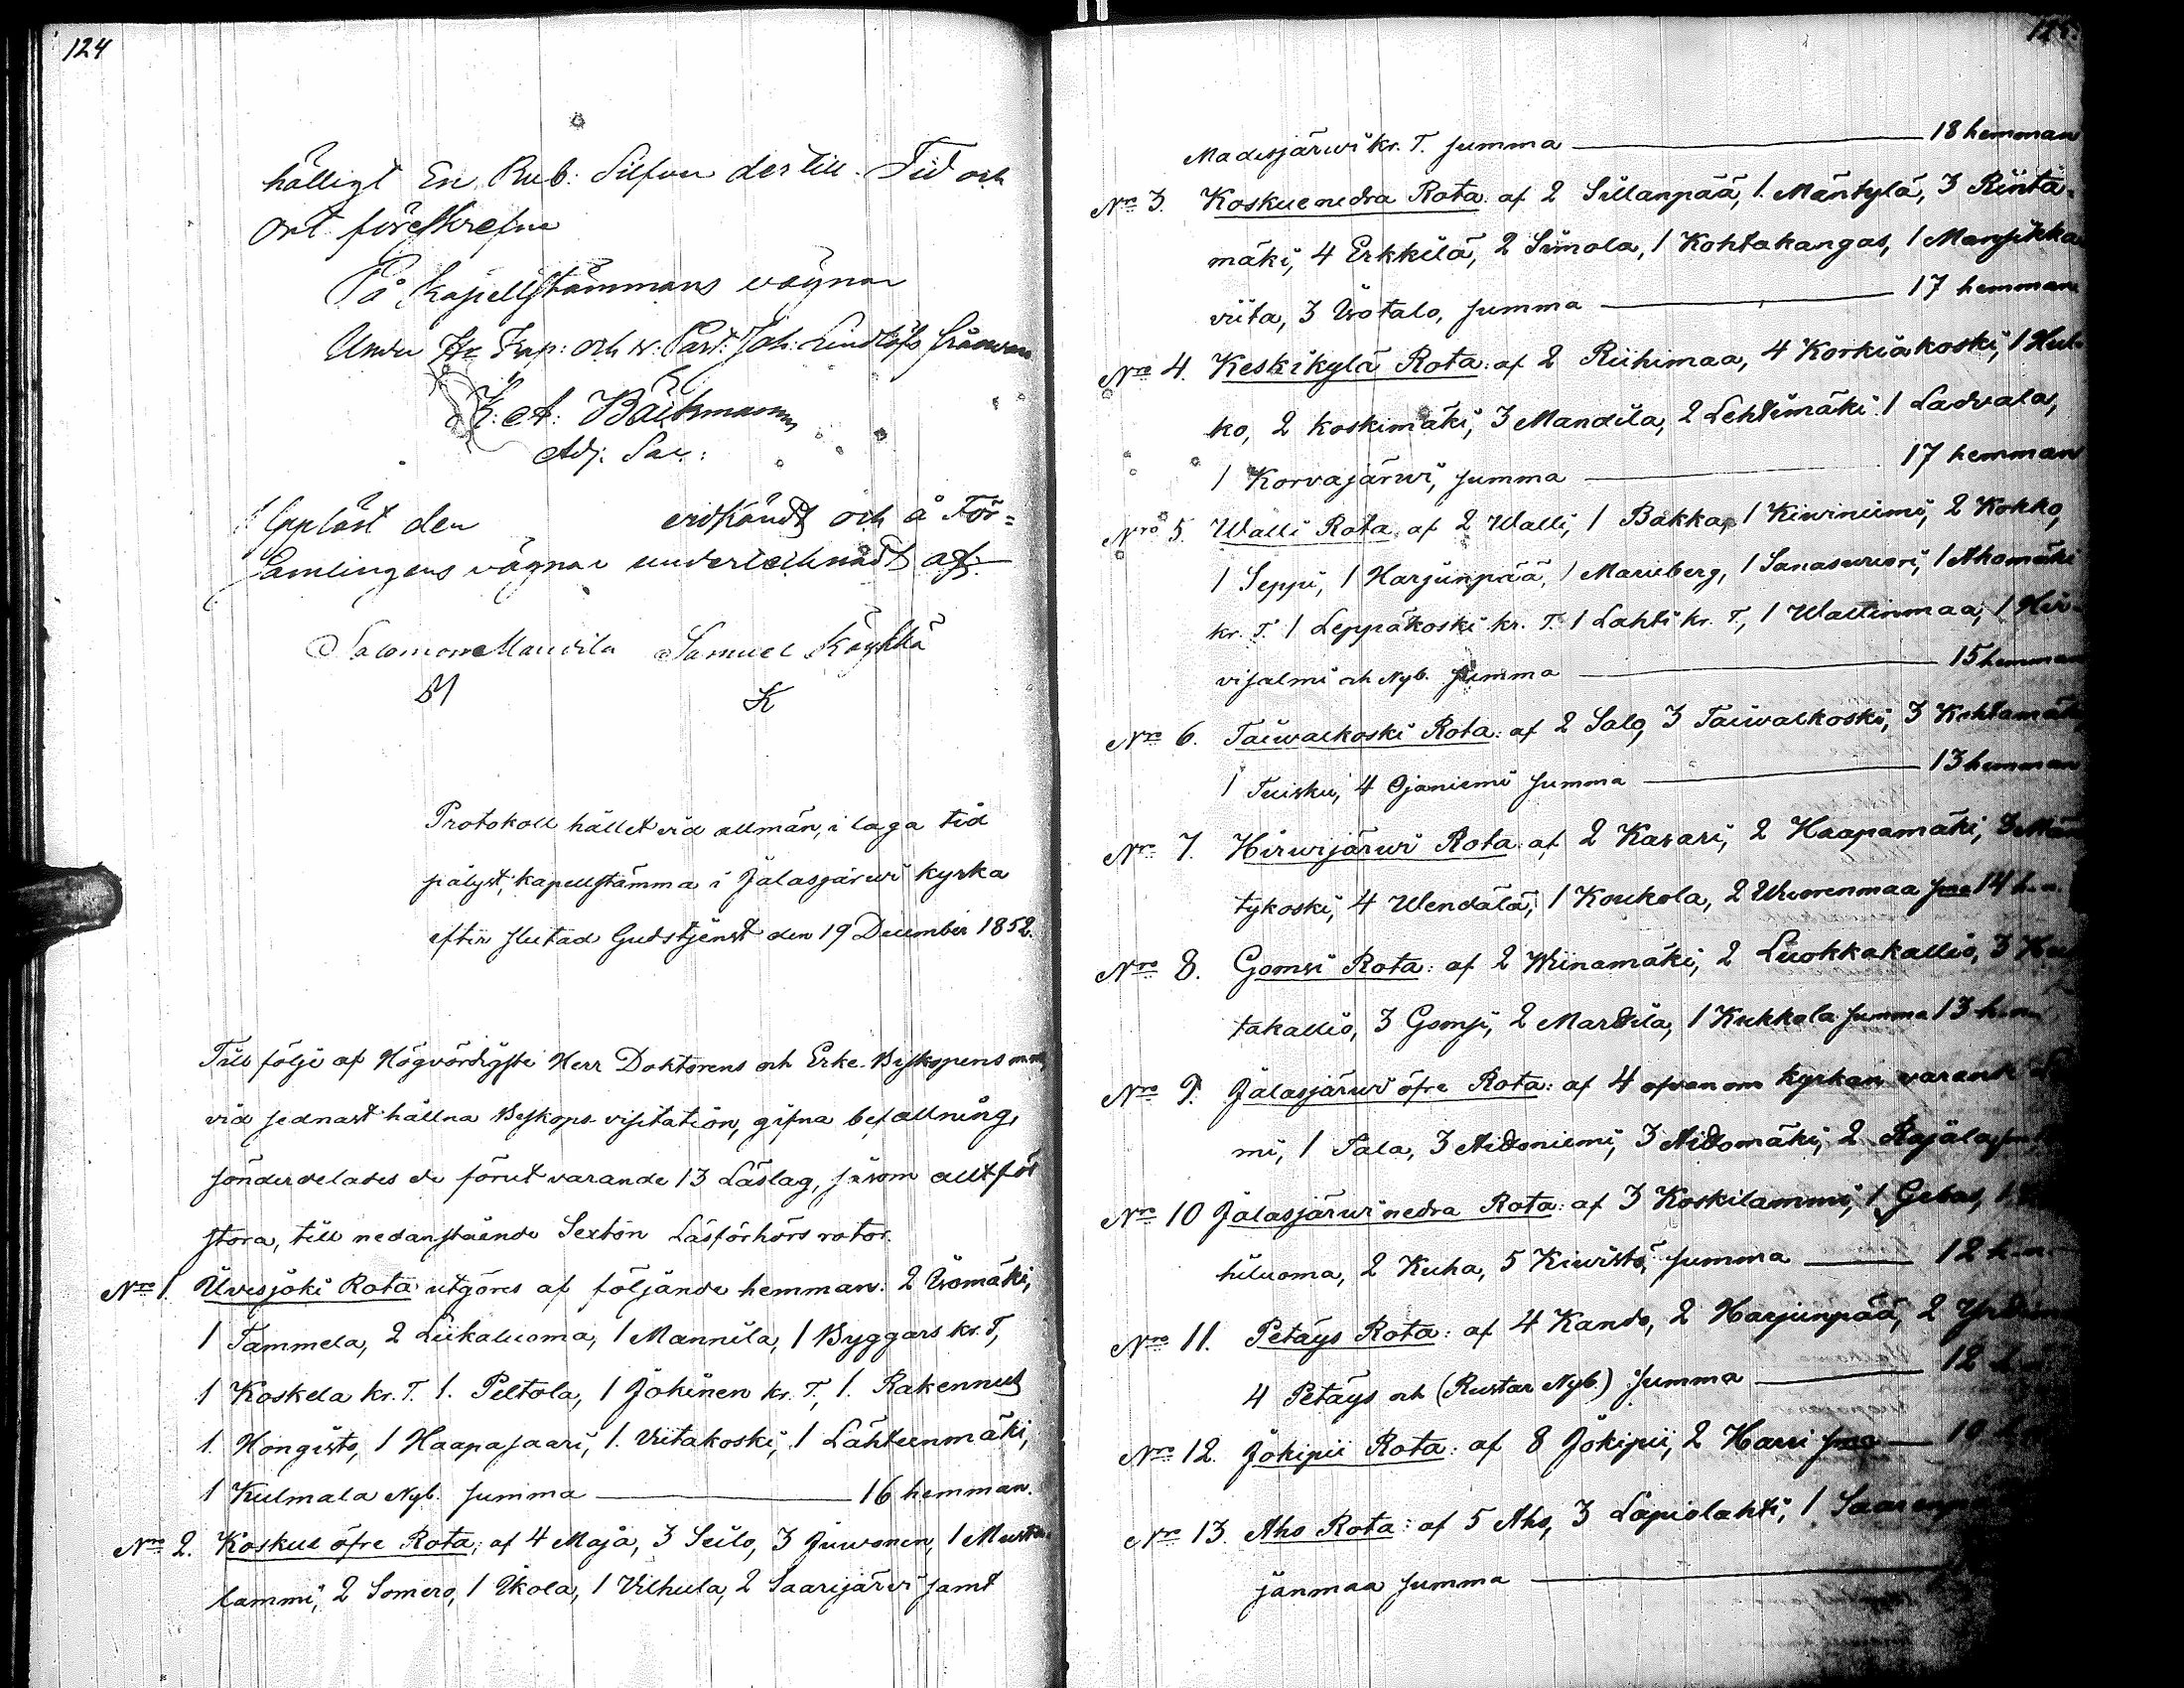 124
hälligt En Rub: Silfver der till. Tid och
Ort föreskrefne
På Kapellstämmans vägnar
Under Hr Kap: och v: Past: Joh: Lindlöfs frånvaro
K: A: Bäckmann
Adj: Sac:
Uppläst den erkändt och å För=
samlingens vägnar undertecknadt af:
Salomon Mandila Samuel Köykkä
M K
Protokoll hållet vid allmän, i laga tid
pålyst, kapellstämma i Jalasjärwi kyrka
efter slutad Gudstjenst den 19 December 1852.
Till följe af Högvördigste Herr Doktorens och Erke-Biskopens
vid sednast hållna Biskops-visitation, gifna befallning,
sönderdelades de förut varande 13 Läslag, såsom alltför
stora, till nedanstående Sexton Läsförhörs rotor.
Nro 1. Ilvesjoki Rota utgöres af följande hemman: 2 Isomäki,
1 Tammela, 2 Liikaluoma, 1 Mannila, 1 Byggars kr. T,
1 Koskela kr. T. 1. Peltola, 1 Jokinen kr. T, 1. Rakennus
1. Hongisto, 1 Haapasaari, 1. Viitakoski, 1 Lähteenmäki,
1 Kulmala Nyb. summa 16 hemman.
Nro 2. Koskue öfre Rota, af 4 Maja, 3 Seilo, 3 Juvonen, 1 Musta-
lammi, 2 Somero, 1 Ikola, 1 Vilhula, 2 Saarijärvi samt
Madesjärwi kr. T. summa 18 hemman
Nro 3. Koskue nedra Rota: af 2 Sillanpää, 1. Mäntylä, 3 Rinta-
mäki, 4 Erkkilä, 2 Simola, 1 Kohtakangas, 1 Mansikka
viita, 3 Isotalo, summa 17 hemman
Nro 4. Keskikylä Rota: af 2 Riihimaa, 4 Korkiakoski, 1 Huh-
ko, 2 koskimäki, 3 Mandila, 2 Lehtimäki 1 Ladvala,
1 Korvajärwi, summa 17 hemman
Nro 5. Walli Rota, af 2 Walli, 1 Bakka, 1 Kiviniemi, 2 Kokko,
1 Seppi, 1 Harjunpää, 1 Marieberg, 1 Sanasvuori, 1 Ahomäki
kr. T. 1 Leppäkoski kr. T. 1 Lahti kr. T, 1 Wallinmaa, 1 Hir-
visalmi och Nyb. summa 15 hemman
Nro 6. Taivalkoski Rota: af 2 Salo, 3 Taivalkoski, 3 Kohtamäki
1 Tuisku, 4 Ojaniemi summa 13 hemman
Nro 7. Hirwijärwi Rota: af 2 Kasari, 2 Haapamäki, 3 Män
tykoski, 4 Wendälä, 1 Koukola, 2 Wuorenmaa sma 14 h-n
Nro 8. Gomsi Rota: af 2 Wiinamäki, 2 Luokkakallio, 3
takallio, 3 Gomsi, 2 Mardila, 1 Kukkola summa 13 h-n
Nro 9. Jalasjärwi öfre Rota: af 4 ofvanom kyrkan varande
mi, 1 Sala, 3 Aidoniemi, 3 Aidomäki, 2 Rajala,
Nro 10 Jalasjärwi nedra Rota: af 3 Koskilammi, 1 Gebas, 1.
hiluoma, 2 Kuha, 5 Kiwistö, summa 12 h-n
Nro 11. Petäys Rota: af 4 Kando, 2 Harjunpää, 2
4 Petäys och (Rustar Nyb.) summa 12
Nro 12. Jokipii Rota: af 8 Jokipii, 2 Harri sma 10
Nro 13. Aho Rota: af 5 Aho, 3 Lapiolahti, 1
janmaa summa